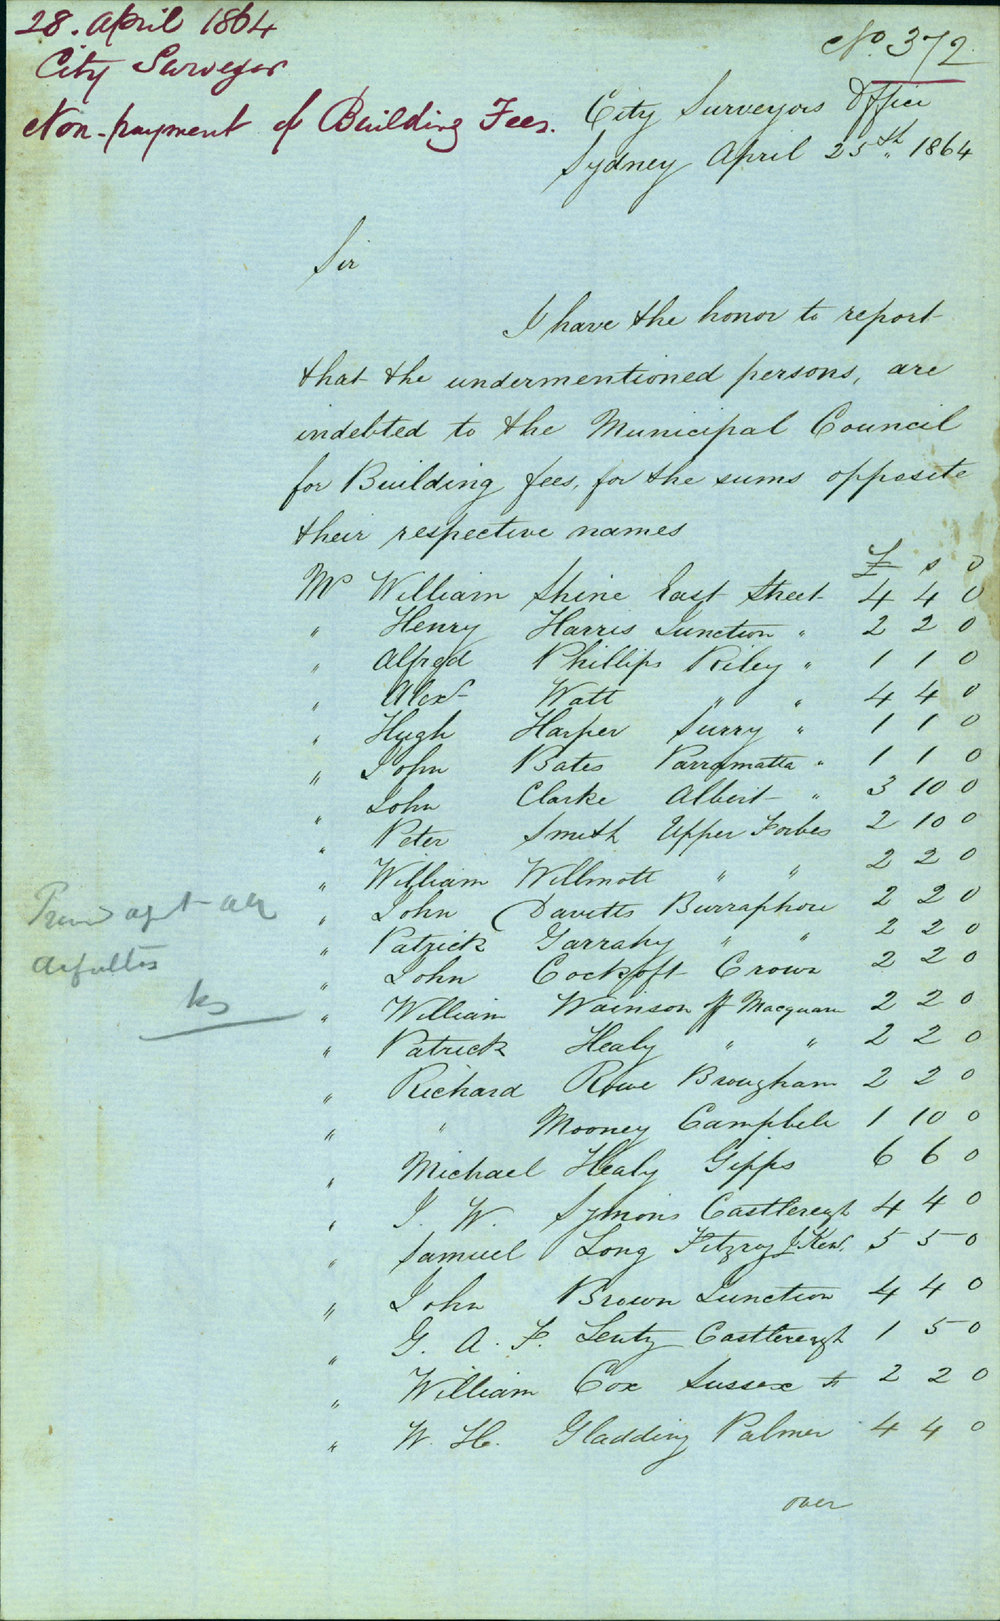 28. April 1864
City Surveyor
Non-payment of Building Fees.
No. 372
City Surveyors Office
Sydney April 25th. 1864
Sir
I have the honor to report
that the undermentioned persons, are
indebted to the Municipal Council
for Building fees, for the sums opposite
their respective names
£ s D
Mr William Shine East Street 4 4 0
" Henry Harris Junction " 2 2 0
" Alfred Phillips Riley " 1 1 0
" Alexr Watt " " 4 4 0
" Hugh Harper Surry " 1 1 0
" John Bates Parramatta " 1 1 0
" John Clarke Albert " 3 10 0
" Peter Smith Upper Forbes 2 10 0
" William Willmott " " 2 2 0
" John Davitts 2 2 0
" Patrick Garrahy " " 2 2 0
" John Cockroft Crown 2 2 0
" William Wainson Macquarie 2 2 0
" Patrick Healy " " 2 2 0
" Richard Rowe Brougham 2 2 0
" " Mooney Campbell 1 10 0
" Michael Healy Gipps 6 6 0
" J. W. Symons Castlereagh 4 4 0
" Samuel Long Fitzroy & Kent 5 5 0
" John Brown Junction 4 4 0
" G. A. F. Lentz Castlereagh 1 5 0
" William Cox Sussex St 2 2 0
" W. H. Gladding Palmer 4 4 0
over
agst all
defaulters